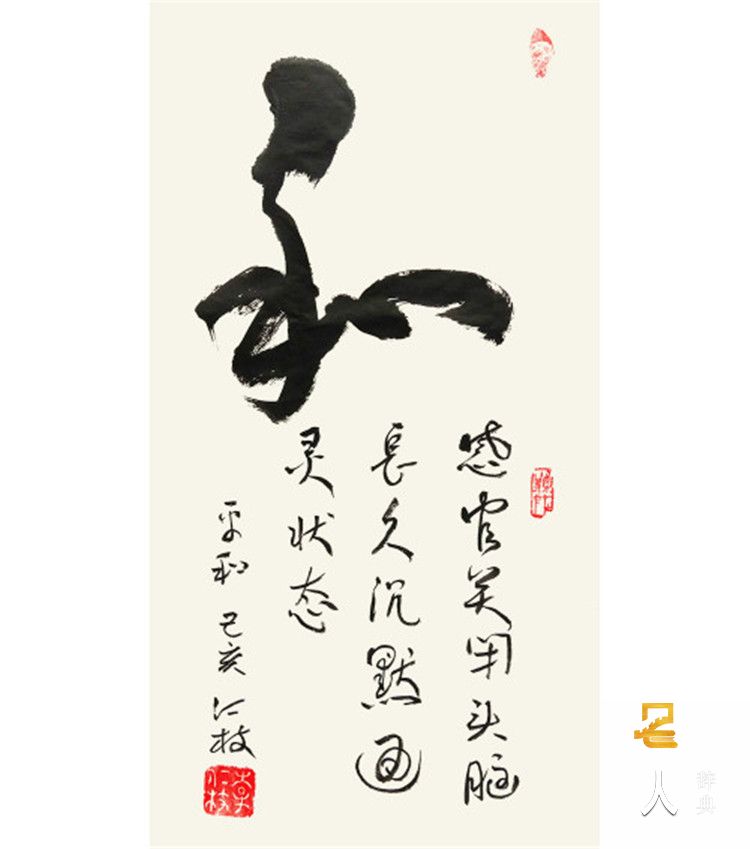 和
感官关闭头脑
长久沉默通
灵状态
平和 己亥 仁枝
李仁枝
名人辞典